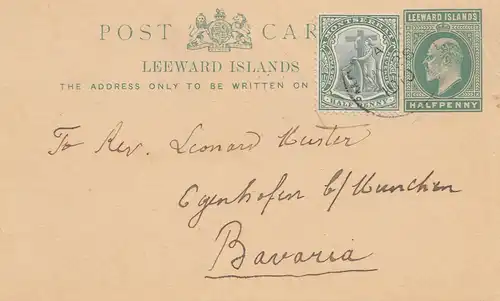 POST CAR
LEEWARD ISLANDS
THE ADDRESS ONLY TO BE WRITTEN ON
MONTSERRAT
HALFPENNY
LEEWARD ISLANDS
HALFPENNY
To Rev. Leonard
Egenhofen b/Munchen
Bavaria